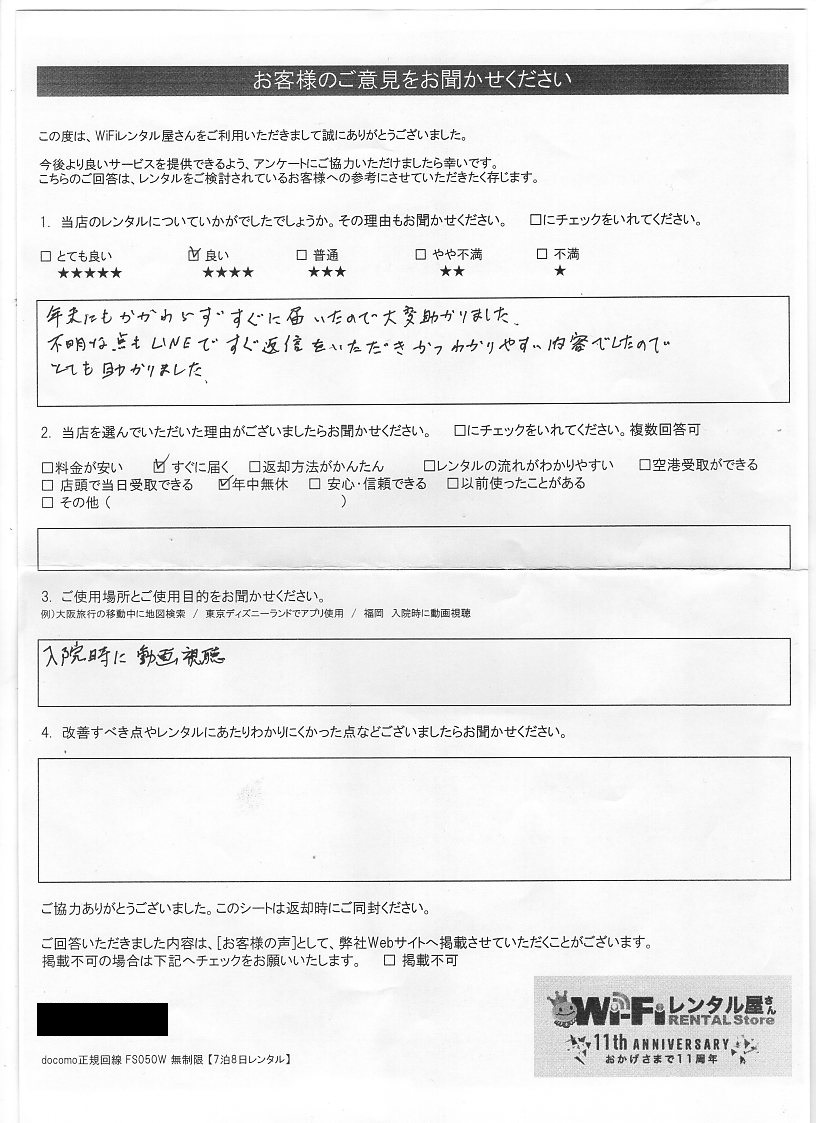 お客様のご意見をお聞かせください
この度は、WiFiレンタル屋さんをご利用いただきまして誠にありがとうございました。
今後より良いサービスを提供できるよう、アンケートにご協力いただけましたら幸いです。
こちらのご回答は、レンタルをご検討されているお客様への参考にさせていただきたく存じます。
1. 当店のレンタルについていかがでしたでしょうか。その理由もお聞かせください。 □にチェックをいれてください。
□ とても良い ☑ 良い □ 普通 □ やや不満 □ 不満
★★★★★ ★★★★ ★★★ ★★ ★
年末にもかかわらずすぐに届いたので大変助かりました。
不明な点もLINEですぐ返信をいただきかつわかりやすい内容でしたので
とても助かりました。
2. 当店を選んでいただいた理由がございましたらお聞かせください。 □にチェックをいれてください。複数回答可
□料金が安い ☑ すぐに届く □返却方法がかんたん □レンタルの流れがわかりやすい □空港受取ができる
□ 店頭で当日受取できる ☑年中無休 □ 安心・信頼できる □以前使ったことがある
□ その他 ( )
3. ご使用場所とご使用目的をお聞かせください。
例)大阪旅行の移動中に地図検索 / 東京ディズニーランドでアプリ使用 / 福岡 入院時に動画視聴
入院時に動画視聴
4. 改善すべき点やレンタルにあたりわかりにくかった点などございましたらお聞かせください。
ご協力ありがとうございました。このシートは返却時にご同封ください。
ご回答いただきました内容は、[お客様の声]として、弊社Webサイトへ掲載させていただくことがございます。
掲載不可の場合は下記へチェックをお願いいたします。 □ 掲載不可
Wi-Fiレンタル屋さん
RENTAL Store
11th ANNIVERSARY
おかげさまで11周年
docomo正規回線 FS050W 無制限【7泊8日レンタル】